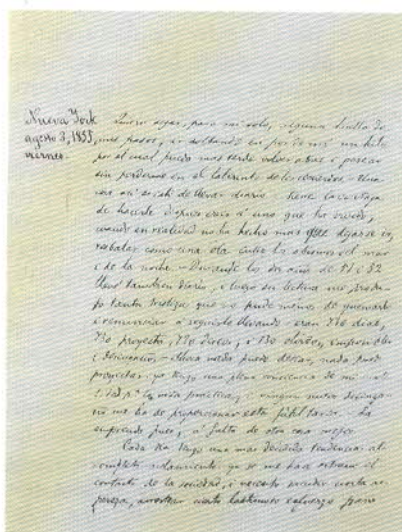 Nueva York
agosto 3, 1855
viernes.
Quiero dejar, para mi solo, alguna huella de
mis pasos, ir soltando en pos de mi un hilo
por el cual pueda mas tarde volver atras i pasear
sin perderme en el laberinto de los recuerdos - Una
vez así se ha de llevar diario - tiene la ventaja
de hacerle despues creer á uno que ha vivido,
cuando en realidad no ha hecho mas que dejarse ir,
resbalar como una ola entre los abismos del mar
i de la noche - Durante los dos años de 51 i 52
llevé tambien diario, i luego su lectura me produ-
jo tanta tristeza que no pude menos de quemarlo
i renunciar á seguirlo llevando - eran 730 dias,
730 proyectos, 730 deseos, i 730 olvidos,
i - Ahora nada puedo desear, nada puedo
proyectar: ya tengo una plena conciencia de mi
la vida práctica, i ningun nuevo desenga-
ño me ha de proporcionar esta fútil tarea. La
emprendo pues, á falta de otra cosa mejor.
Cada dia tengo una mas decidida tendencia al
completo aislamiento: ya se me hace estraño el
contacto de la sociedad, i necesito sacudir cierta as-
pereza, arrostrar cierto esfuerzo para